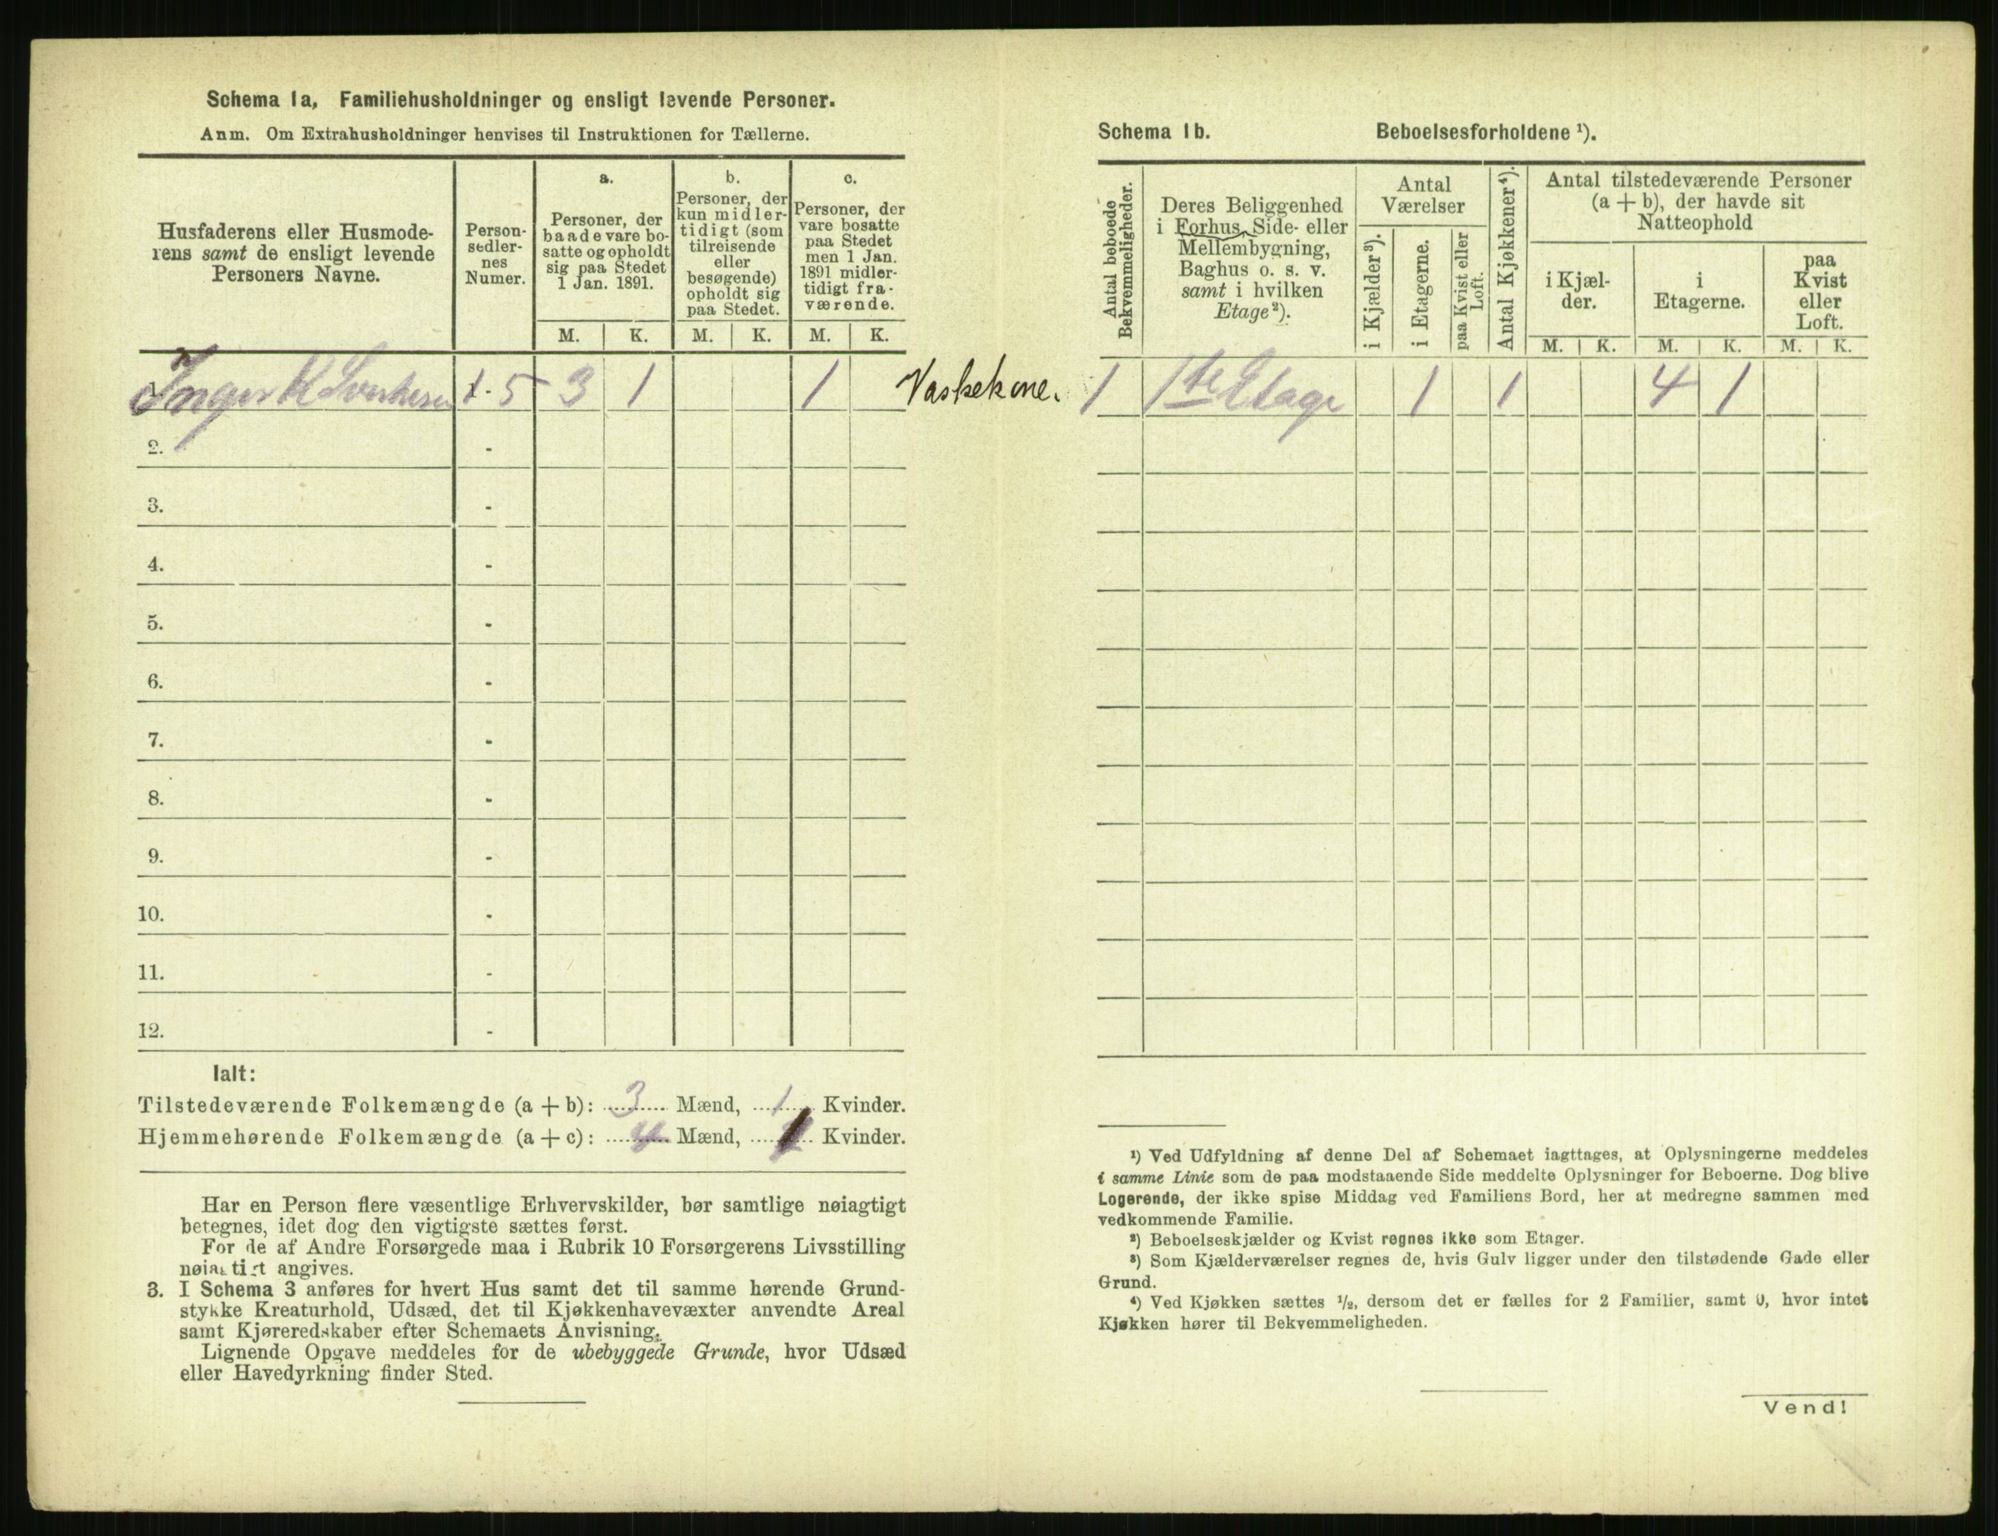 Schema 1a, Familiehusholdninger og ensligt levende Personer.
Anm. Om Extrahusholdninger henvises til Instruktionen for Tællerne.
Husfaderens eller Husmode-
rens samt de ensligt levende
Personers Navne.
Person-
sedler-
nes
Numer.
a.
Personer, der
baade vare bo-
satte og opholdt
sig paa Stedet
1 Jan. 1891.
b.
Personer, der
kun midler-
tidigt (som
tilreisende
eller
besøgende)
opholdt sig
paa Stedet.
c.
Personer, der
vare bosatte
paa Stedet
men 1 Jan.
1891 midler-
tidigt fra-
værende.
M. K. M. K. M. K.
Inger K 1 - 5 3 1 1 Vaskekone.
2. -
3. -
4. -
5. -
6. -
7. -
8. -
9. -
10. -
11. -
12. -
Ialt:
Tilstedeværende Folkemængde (a + b): 3 Mænd, 1 Kvinder.
Hjemmehørende Folkemængde (a + c): 4 Mænd, 1 Kvinder.
Har en Person flere væsentlige Erhvervskilder, bør samtlige nøiagtigt
betegnes, idet dog den vigtigste sættes først.
For de af Andre Forsørgede maa i Rubrik 10 Forsørgerens Livsstilling
nøiagtigt angives.
3. I Schema 3 anføres for hvert Hus samt det til samme hørende Grund-
stykke Kreaturhold, Udsæd, det til Kjøkkenhavevæxter anvendte Areal
samt Kjøreredskaber efter Schemaets Anvisning.
Lignende Opgave meddeles for de ubebyggede Grunde, hvor Udsæd
eller Havedyrkning finder Sted.
Schema 1b. Beboelsesforholdene ¹).
Antal beboede
Bekvemmeligheder.
Deres Beliggenhed
i Forhus, Side- eller
Mellembygning,
Baghus o. s. v.
samt i hvilken
Etage²).
Antal
Værelser
i Kjælder³).
i Etagerne.
paa Kvist eller
Loft.
Antal Kjøkkener⁴).
Antal tilstedeværende Personer
(a + b), der havde sit
Natteophold
i Kjæl-
der.
i
Etagerne.
paa
Kvist
eller
Loft.
M. K. M. K. M. K.
1 1ste Etage 1 1 4 1
¹) Ved Udfyldning af denne Del af Schemaet iagttages, at Oplysningerne meddeles
i samme Linie som de paa modstaaende Side meddelte Oplysninger for Beboerne. Dog blive
Logerende, der ikke spise Middag ved Familiens Bord, her at medregne sammen med
vedkommende Familie.
²) Beboelseskjælder og Kvist regnes ikke som Etager.
³) Som Kjælderværelser regnes de, hvis Gulv ligger under den tilstødende Gade eller
Grund.
⁴) Ved Kjøkken sættes ½, dersom det er fælles for 2 Familier, samt 0, hvor intet
Kjøkken hører til Bekvemmeligheden.
Vend!